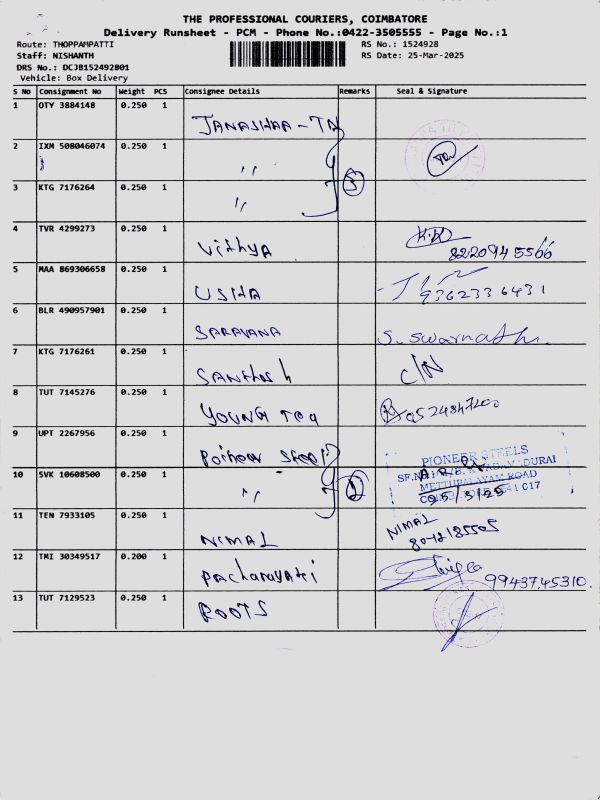 THE PROFESSIONAL COURIERS, COIMBATORE
Delivery Runsheet - PCM - Phone No.:0422-3505555 - Page No.:1
Route: THOPPAMPATTI
RS No.: 1524928
Staff: NISHANTH
RS Date: 25-Mar-2025
DRS No.: DCJB152492801
Vehicle: Box Delivery
S No Consignment No Weight PCS Consignee Details Remarks Seal & Signature
1 OTY 3884148 0.250 1
2 IXM 508046074 0.250 1 〃
3 KTG 7176264 0.250 1 〃 3
4 TVR 4299273 0.250 1 Vithya 8220945566
5 MAA 869306658 0.250 1 USHA 9362336431
6 BLR 490957901 0.250 1 SARAVANA
7 KTG 7176261 0.250 1 Santhosh C/N
8 TUT 7145276 0.250 1 YOUNG
9 UPT 2267956 0.250 1 PIONEER STEELS
10 SVK 10608500 0.250 1 〃
METTUPALAYAM ROAD
25/3/25
11 TEN 7933105 0.250 1 NIMAL NIMAL
12 TMI 30349517 0.200 1 9943745310
13 TUT 7129523 0.250 1 ROOTS